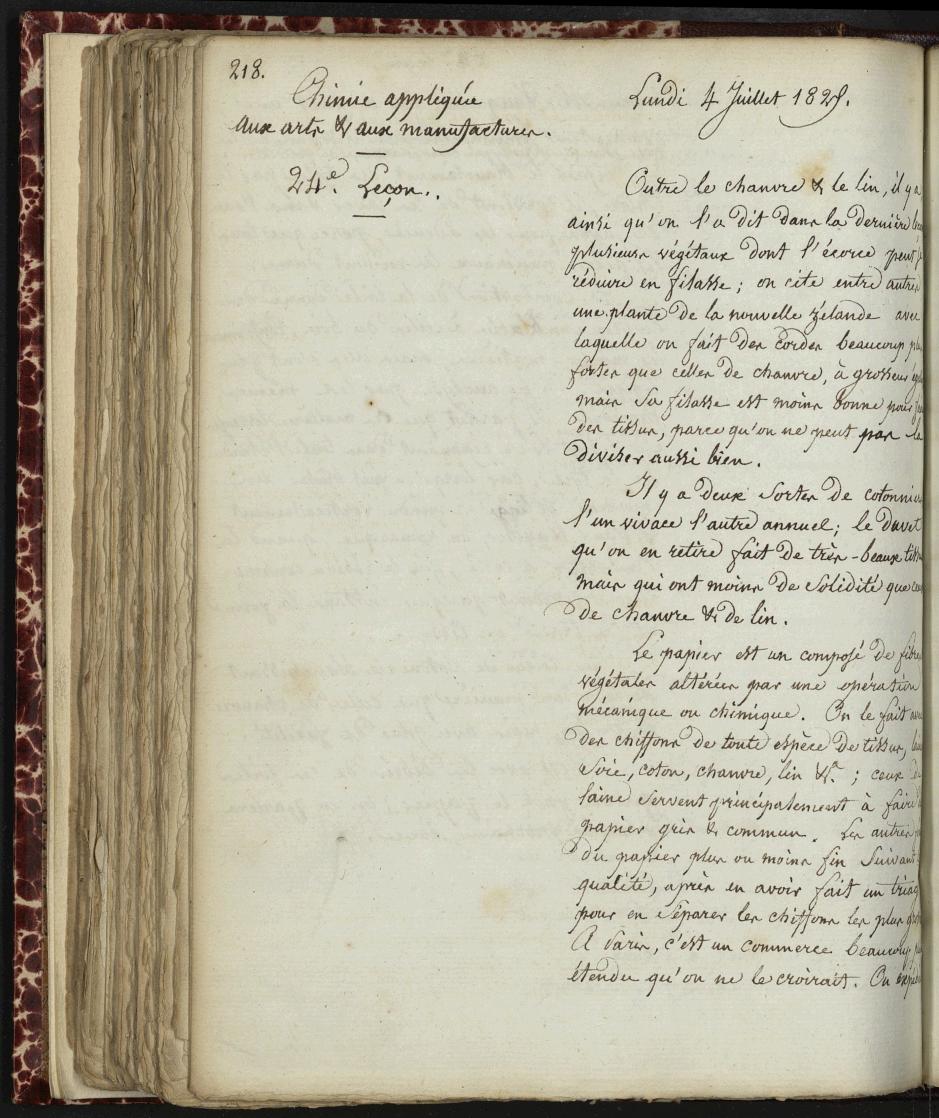 218.
Chimie appliquée
aux arts & aux manufactures.
24e. Leçon.
Lundi 4 Juillet 1825.
Outre le chanvre & le lin, il y a
ainsi qu'on l'a dit dans la dernière
plusieurs végétaux dont l'écorce peut
réduire en filasse; on cite entre autres
une plante de la nouvelle zélande avec
laquelle on fait des cordes beaucoup
fortes que celles de chanvre, à grosseur
mais sa filasse est moins bonne pour
des tissus, parce qu'on ne peut pas la
diviser aussi bien.
Il y a deux sortes de cotonnier
l'un vivace l'autre annuel; le duvet
qu'on en retire fait de très-beaux
mais qui ont moins de solidité que
de chanvre & de lin.
Le papier est un composé de fibres
végétales altérées par une opération
mécanique ou chimique. On le fait
des chiffons de toute espèce de tissus,
soie, coton, chanvre, lin &a.; ceux
laine servent principalement à faire
papier gris & commun. Les autres
du papier plus ou moins fin suivant
qualité, après en avoir fait un
pour en séparer les chiffons les plus
A Paris, c'est un commerce beaucoup
étendu qu'on ne le croirait. On